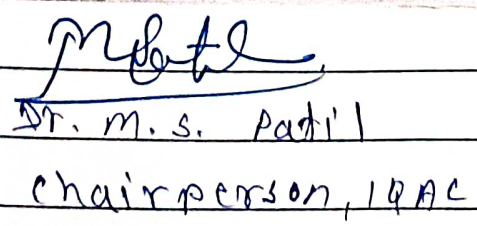 MPatil
Dr. M. S. Patil
Chairperson, IQAC